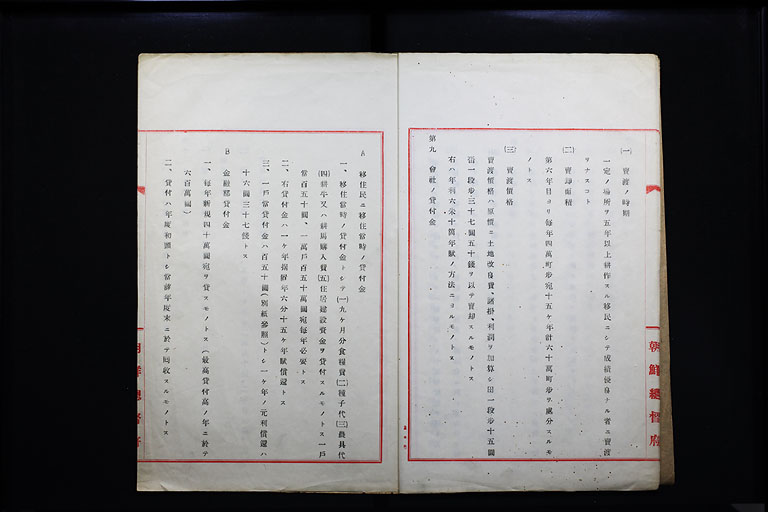 (一) 賣渡ノ時期
一定ノ場所ヲ五年以上耕作スル移民ニシテ成績優良ナル者ニ賣渡
リナスコト
(二) 賣却面積
第六年目ヨリ毎年四萬町步宛十五ケ年計六十萬町步ヲ處分スルモ
ノトス
(三) 賣渡價格
賣渡價格ハ原價ニ土地改良費、諸掛、利潤ヲ加算シ田一段步十五圓
畑一段步三十七圓五十錢ヲ以テ賣却スルモノトス
右ハ年利六朱十箇年賦ノ方法ニヨルモノトス
第九 會社ノ貸付金
朝鮮總督府
A 移住民ニ移住當時ノ貸付金
一、移住當時ノ貸付金トシテ(一)九ケ月分食糧費(二)種子代(三)農具代
(四)耕牛又ハ耕馬購入費(五)住居建設資金ヲ貸付スルモノトス一戶
當百五十圓、一萬戶百五十萬圓宛每年必要トス
二、右貸付金ハ一ケ年据置年六分十五ケ年賦償還トス
三、一戶當貸付金ハ百五十圓(別紙參照)トシ一ケ年ノ元利償還ハ
十六圓三十七錢トス
B 金融部貸付金
一、每年新規四十萬圓宛ヲ貸スモノトス(最高貸付高ノ年ニ於テ
六百萬圓)
二、貸付ハ年度初頭トシ當該年度末ニ於テ回收スルモノトス
朝鮮總督府